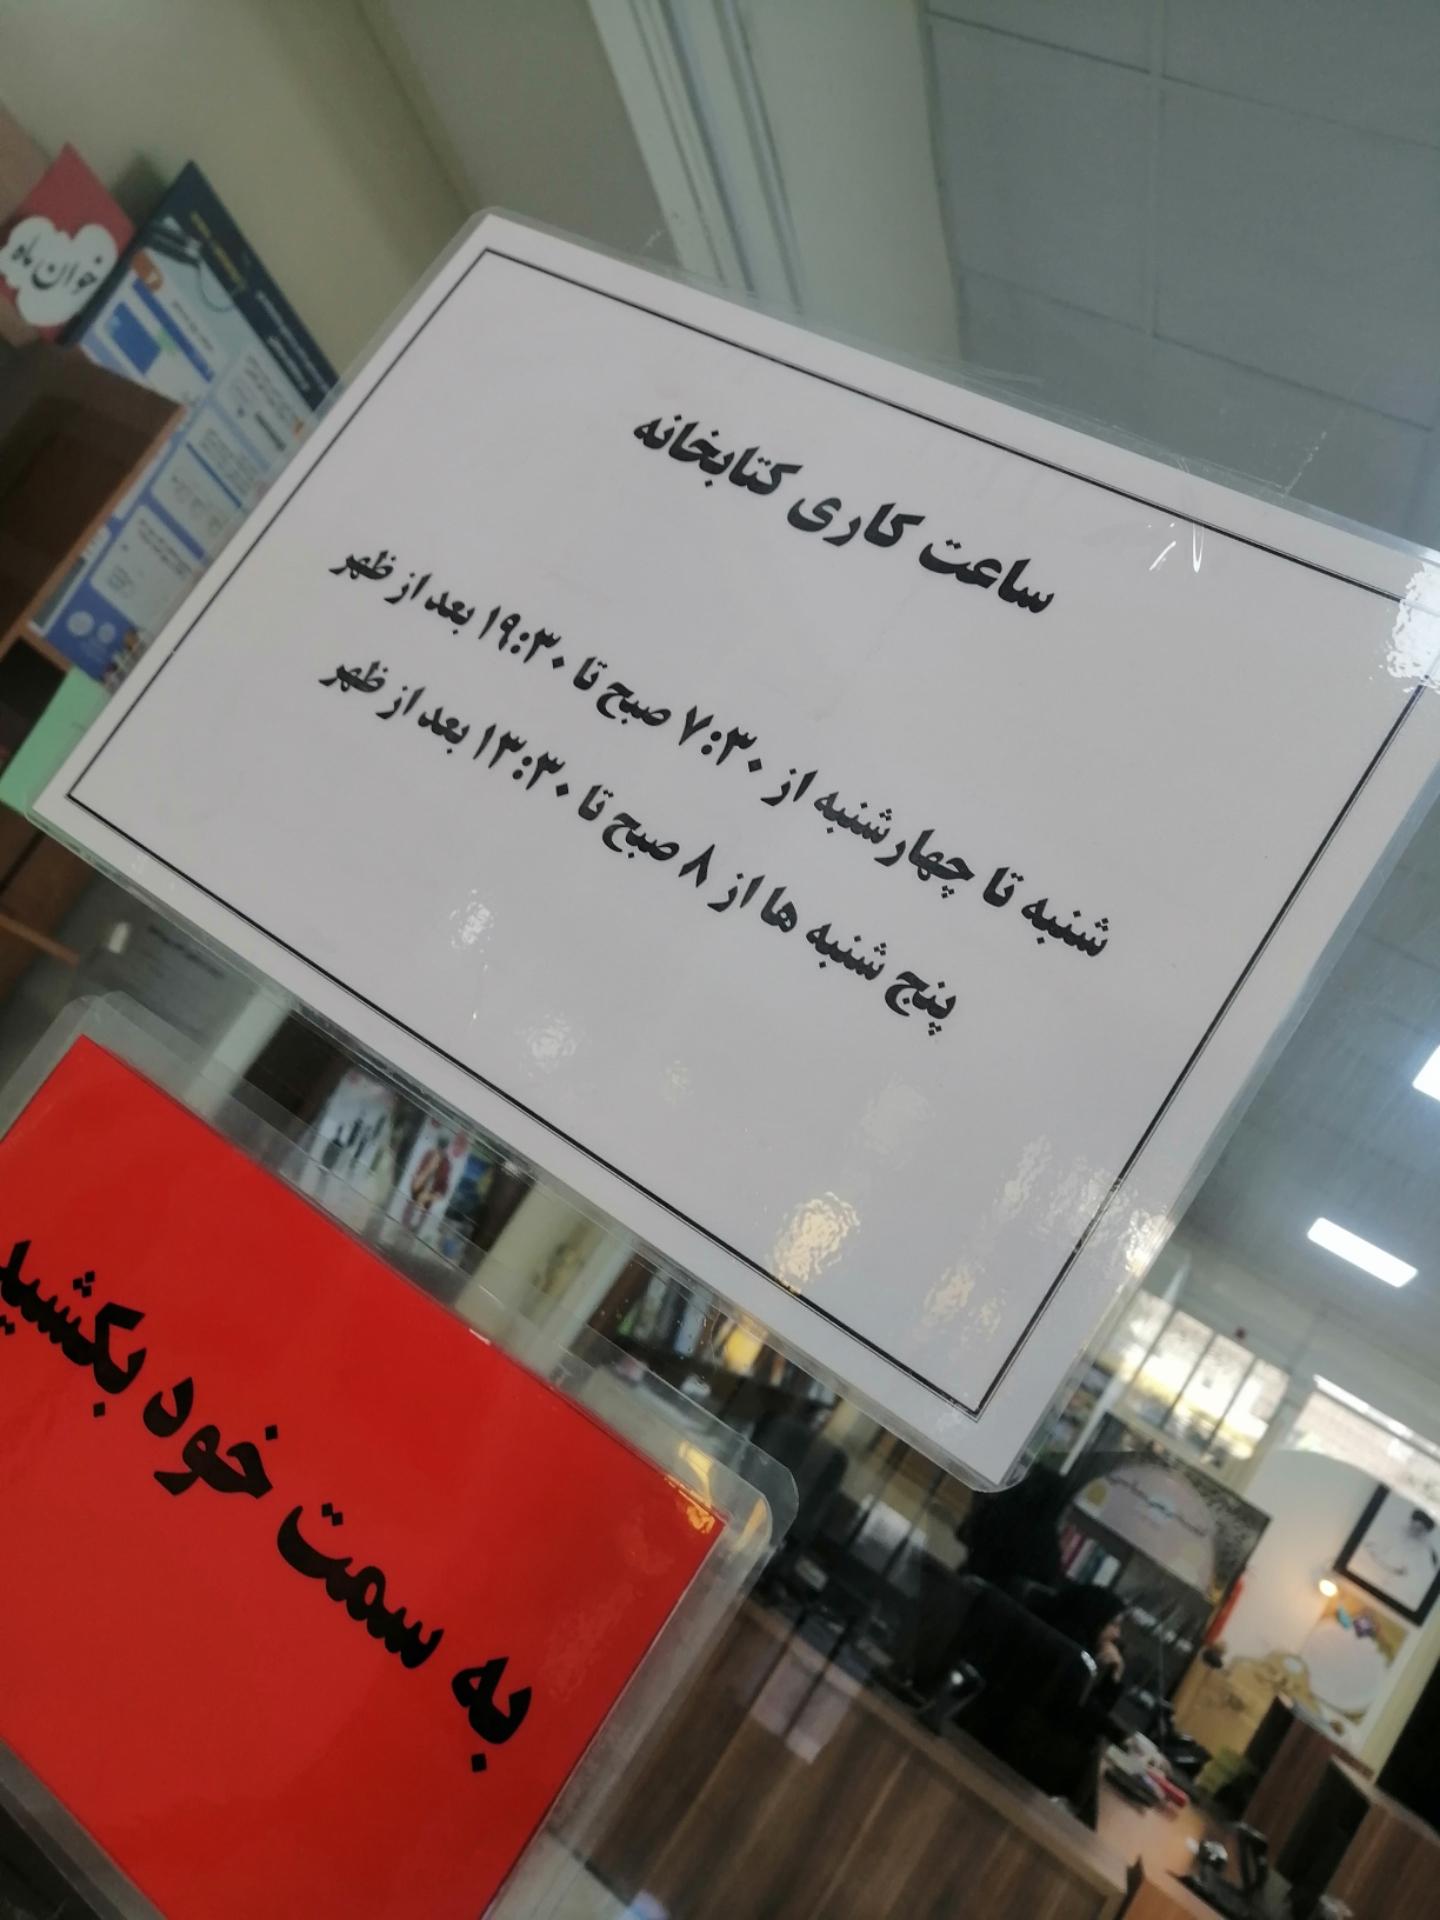 خوان ماه
ساعت کاری کتابخانه
شنبه تا چهارشنبه از ۷:۳۰ صبح تا ۱۹:۳۰ بعد از ظهر
پنج شنبه ها از ۸ صبح تا ۱۳:۳۰ بعد از ظهر
به سمت خود بکشید